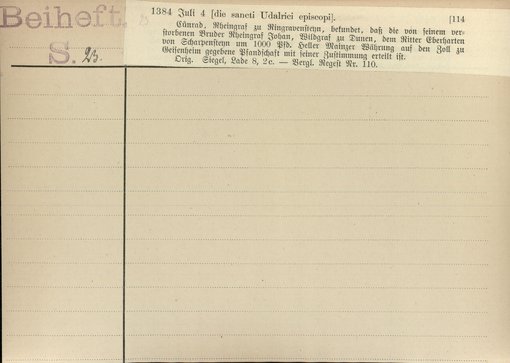 Beiheft.
S. 23.
1384 Juli 4 [die sancti Udalrici episcopi]. [114
Cůnrad, Rheingraf zu Ringravensteyn, bekundet, daß die von seinem ver-
storbenen Bruder Rheingraf Johan, Wildgraf zu Dunen, dem Ritter Eberharten
von Scharpensteyn um 1000 Pfd. Heller Mainzer Währung auf den Zoll zu
Geisenheim gegebene Pfandschaft mit seiner Zustimmung erteilt ist.
Orig. Siegel, Lade 8, 2c. — Vergl. Regest Nr. 110.